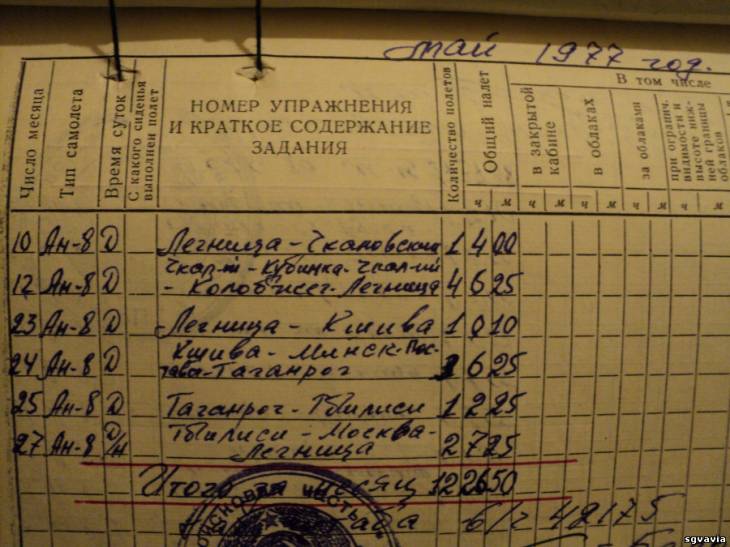 май 1977 год.
Число месяца
Тип самолета
Время суток
С какого сиденья выполнен полет
НОМЕР УПРАЖНЕНИЯ
И КРАТКОЕ СОДЕРЖАНИЕ
ЗАДАНИЯ
Количество полетов
Общий налет
В том числе
в закрытой кабине
в облаках
за облаками
при огранич. видимости и высоте нижней границы облаков
ч м ч м ч м ч м ч
10 Ан-8 Д Легница - Чкаловский 1 4 00
Чкал-й - Кубинка - Чкал-ий
12 Ан-8 Д - Колобжег - Легница 4 6 25
23 Ан-8 Д Легница - Кшива 1 0 10
Кшива - Минск - Пос-
24 Ан-8 Д тава - Таганрог 3 6 25
25 Ан-8 Д Таганрог - Тбилиси 1 2 25
Тбилиси - Москва -
27 Ан-8 Д/Н Легница 2 7 25
Итого за месяц 12 26 50
штаба в/ч 42175
sgvavia